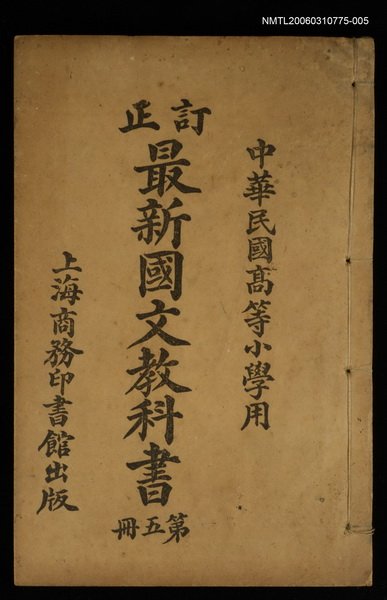 NMTL20060310775-005
中華民國高等小學用
訂正
最新國文教科書
第五冊
上海商務印書館出版